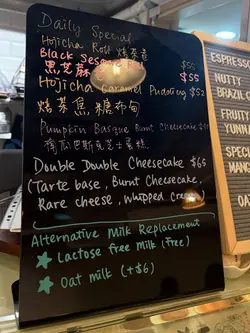 Daily Special
Hojicha Roll 焙茶卷 $55
Black Sesame
黑芝麻 $55
Hojicha Caramel Pudding $52
焙茶焦糖布甸
Pumpkin Basque Burnt Cheesecake
南瓜巴斯克芝士蛋糕
Double Double Cheesecake $65
(Tarte base, Burnt Cheesecake,
Rare cheese, Whipped Cream)
Alternative Milk Replacement
★ Lactose free Milk (Free)
★ Oat milk (+$6)
ESPRESSO
NUTTY
BRAZIL
FRUITY
SPECIAL
OAT